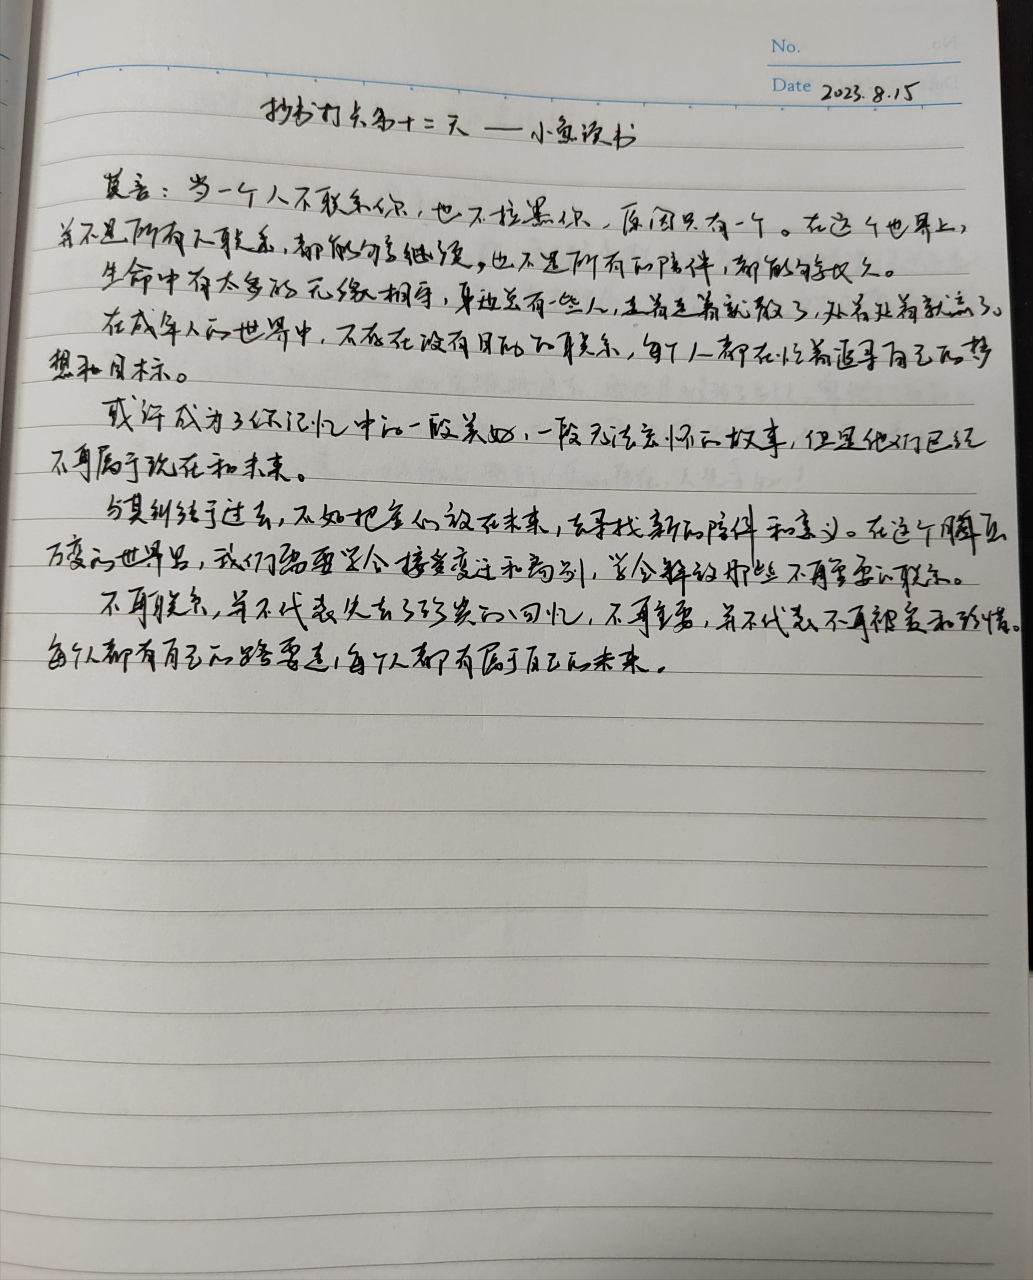 No.
Date 2023.8.15
抄书打卡第十二天 — 小鱼读书
莫言：当一个人不联系你，也不拉黑你，原因只有一个。在这个世界上，
并不是所有不联系，都能够继续，也不是所有的陪伴，都能够长久。
生命中有太多的无缘相守，身边总有一些人，走着走着就散了，处着处着就离了。
在成年人的世界中，不存在没有目的的联系，每个人都在忙着追寻自己的梦
想和目标。
或许成为了你记忆中的一段美好，一段无法忘怀的故事，但是他们已经
不再属于现在和未来。
与其纠结于过去，不如把重心放在未来，去寻找新的陪伴和意义。在这个瞬息
万变的世界里，我们需要学会接受变迁和离别，学会释放那些不再重要的联系。
不再联系，并不代表失去了珍贵的回忆，不再重要，并不代表不再被爱和珍惜。
每个人都有自己的路要走，每个人都有属于自己的未来。